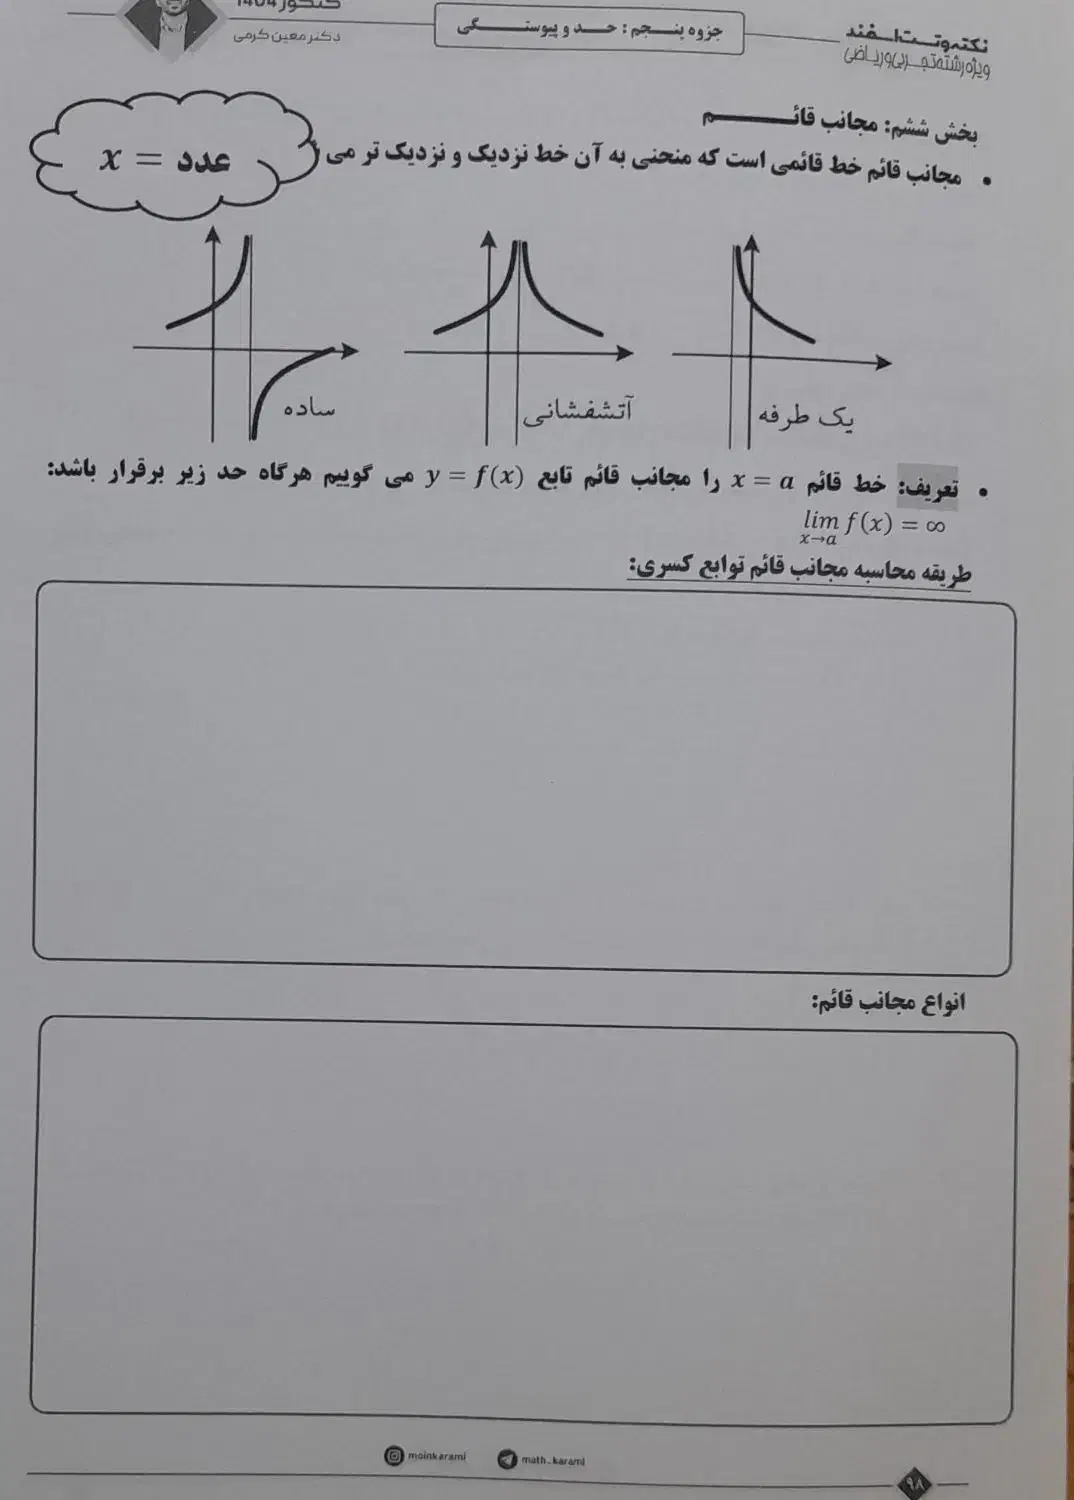 نکته و تست اسفند
ویژه رشته تجربی و ریاضی
جزوه پنجم : حد و پیوستگی
کنکور 1404
دکتر معین کرمی
بخش ششم: مجانب قائم
• مجانب قائم خط قائمی است که منحنی به آن خط نزدیک و نزدیک تر می
x = عدد
ساده
آتشفشانی
یک طرفه
• تعریف: خط قائم x = a را مجانب قائم تابع y = f(x) می گوییم هرگاه حد زیر برقرار باشد:
lim f(x) = ∞
x→a
طریقه محاسبه مجانب قائم توابع کسری:
انواع مجانب قائم:
moinkarami
math_karami
۹۸